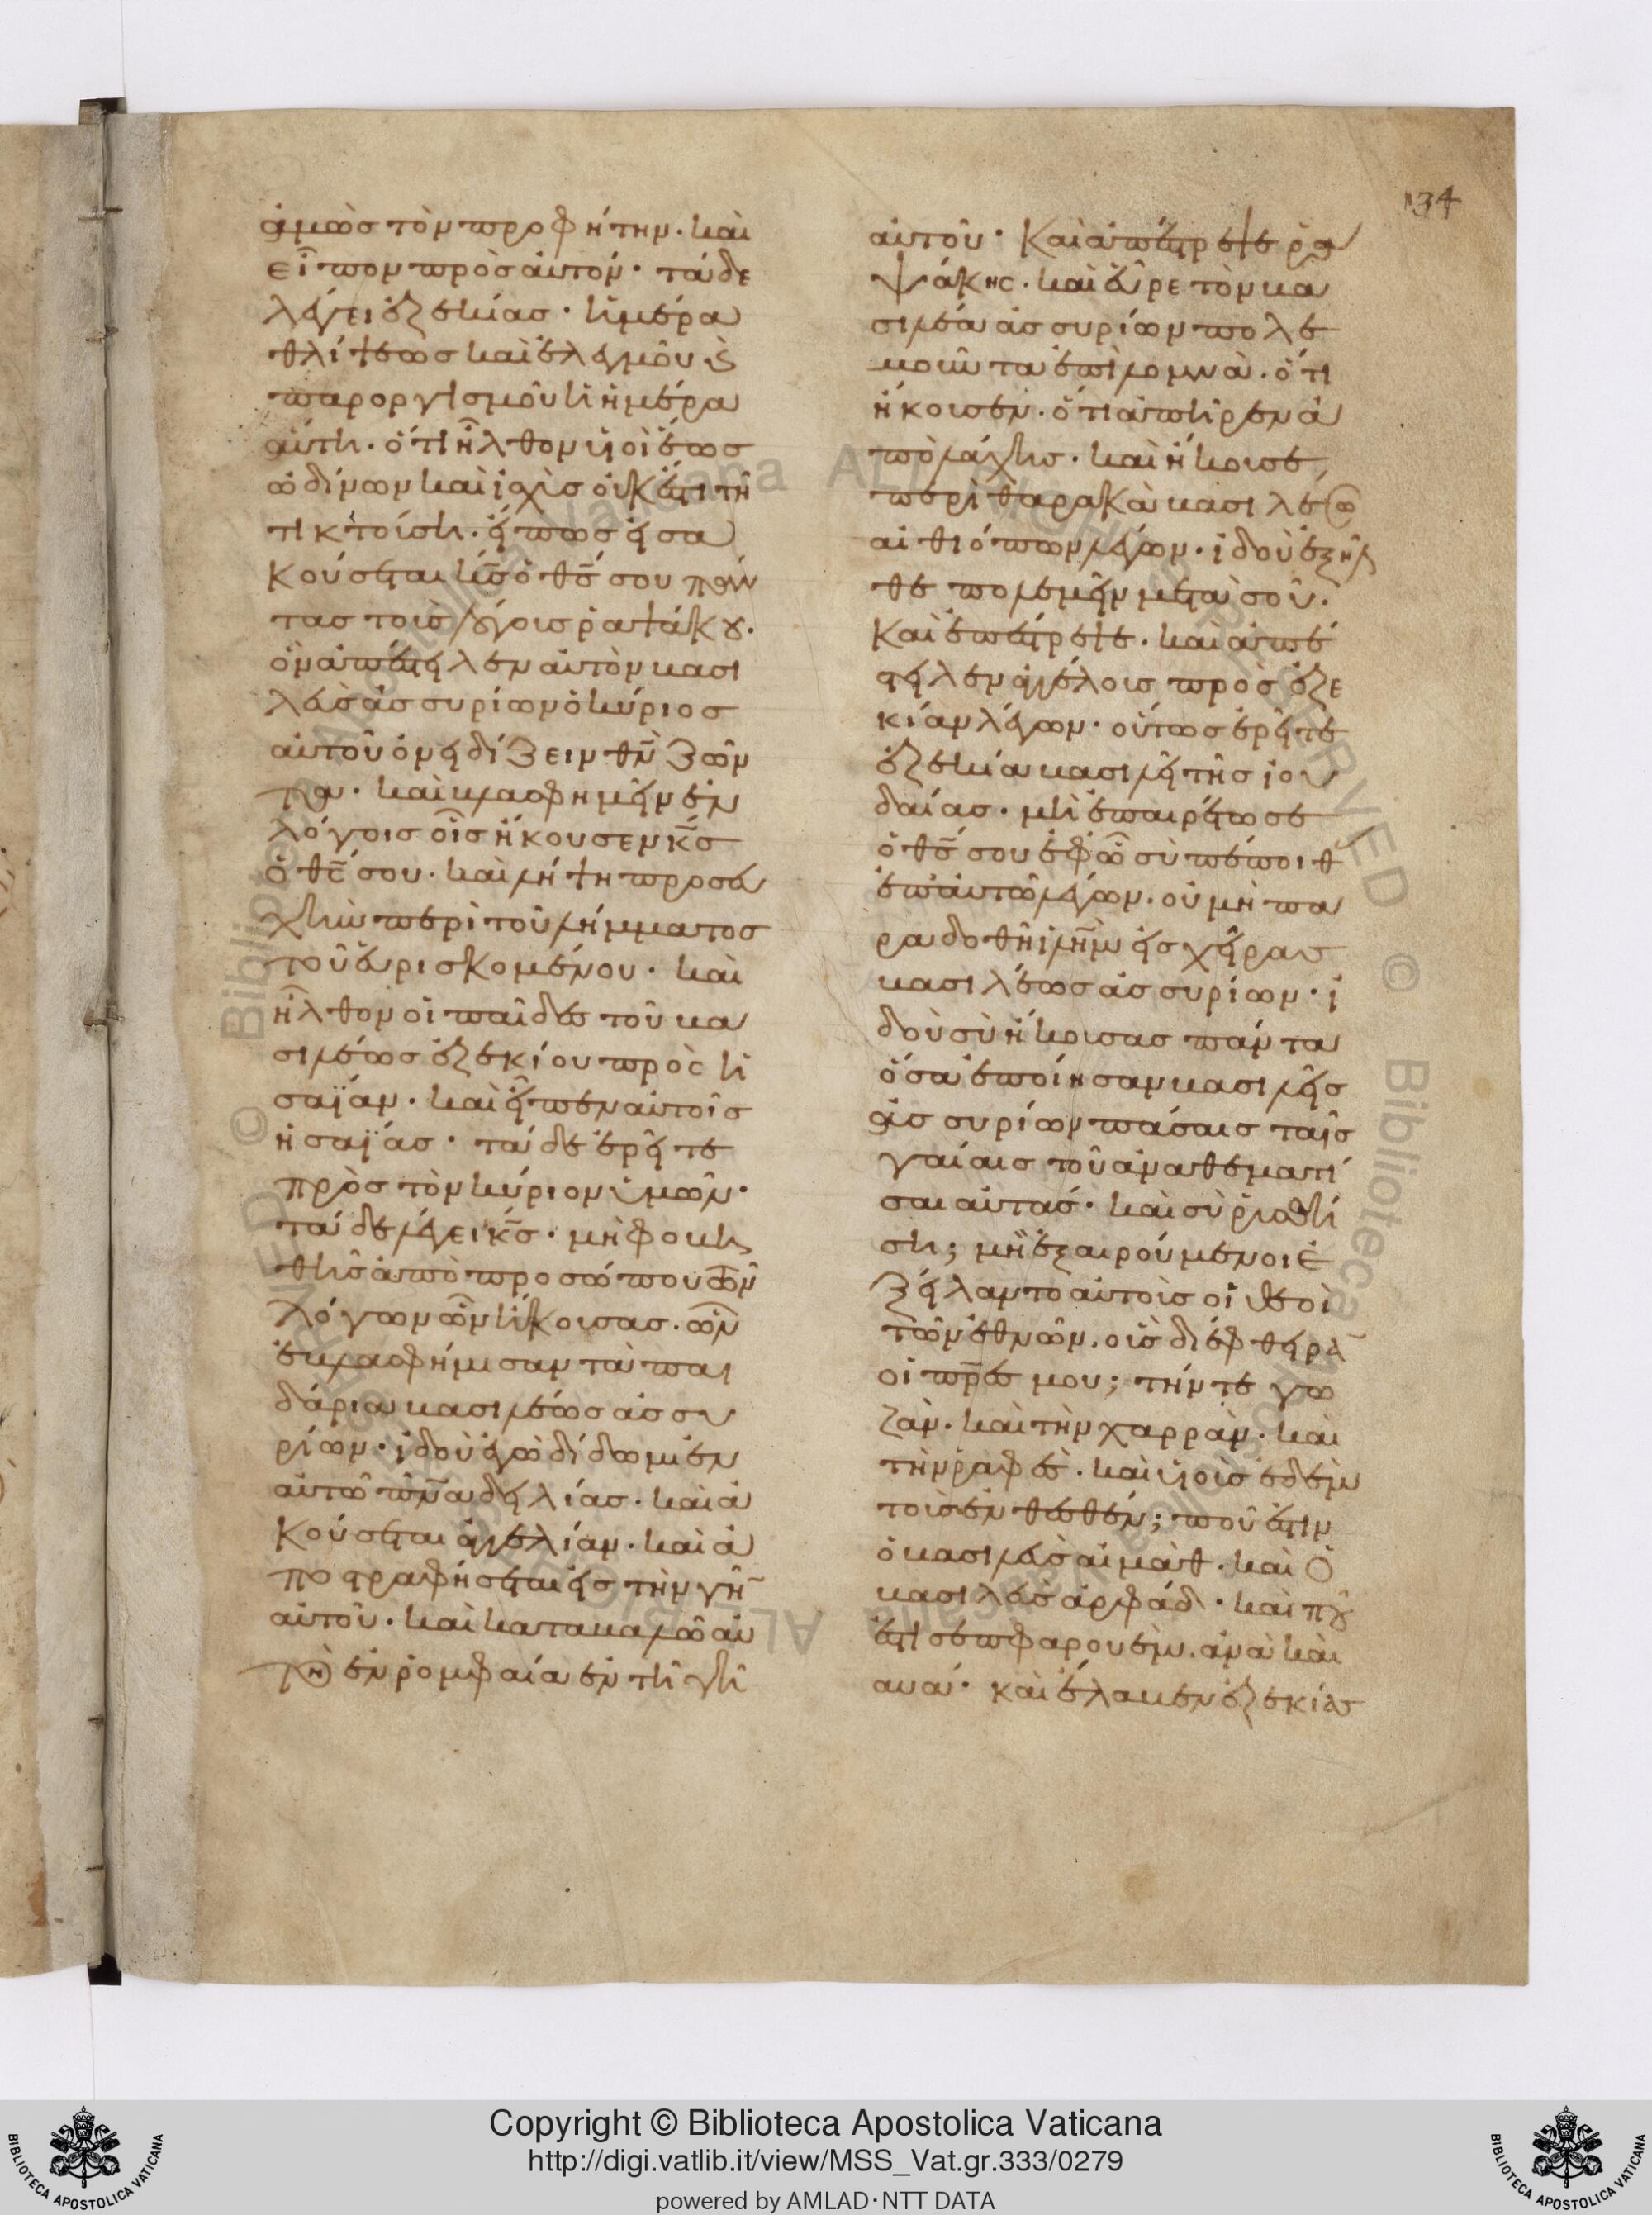 134
ἀμὼς τὸν προφήτην· καὶ
εἶπον πρὸς αὐτόν· τάδε
λέγει ἐζεκίας· ἡμέρα
θλίψεως καὶ ἐλεγμοῦ καὶ
παροργισμοῦ ἡ ἡμέρα
αὕτη· ὅτι ἦλθον υἱοὶ ἕως
ὠδίνων καὶ ἰσχὺς οὐκ ἔστι τῇ
τικτούσῃ· εἴπως εἰσα
κούσεται κ̅ς̅ ὁ θ̅ς̅ σου πάν
τας τοὺς λόγους ῥαψάκου·
ὃν ἀπέστειλεν αὐτὸν βασι
λεὺς ἀσσυρίων ὁ κύριος
αὐτοῦ ὀνειδίζειν θ̅ν̅ ζῶν
τα· καὶ βλασφημεῖν ἐν
λόγοις οἷς ἤκουσεν κ̅ς̅
ὁ θ̅ς̅ σου· καὶ λήψη προσευ
χὴν περὶ τοῦ λήμματος
τοῦ εὑρισκομένου· καὶ
ἦλθον οἱ παῖδες τοῦ βα
σιλέως ἐζεκίου πρὸς ἡ
σαΐαν· καὶ εἶπεν αὐτοῖς
ἡσαΐας· τάδε ἐρεῖτε
πρὸς τὸν κύριον ὑμῶν·
τάδε λέγει κ̅ς̅· μὴ φοβη
θῇς ἀπὸ προσώπου τῶν
λόγων ὧν ἤκουσας· ὧν
ἐβλασφήμησαν τὰ παι
δάρια βασιλέως ἀσσυ
ρίων· ἰδοὺ ἐγὼ δίδωμι ἐν
αὐτῷ πν̅α̅ δειλίας· καὶ ἀ
κούσεται ἀγγελίαν· καὶ ἀ
ποστραφήσεται εἰς τὴν γῆν
αὐτοῦ· καὶ καταβαλῶ αὐ
τὸν ἐν ῥομφαία ἐν τῇ γῇ
αὐτοῦ· Καὶ ἀπέστρεψε ῥα
ψάκης· καὶ εὗρε τὸν βα
σιλέα ἀσσυρίων πολε
μοῦντα ἐπὶ λομνὰ· ὅτι
ἤκουσεν· ὅτι ἀπῆρεν ἀ
πὸ λάχης· καὶ ἤκουσε
περὶ θαρακὰ βασιλέως
αἰθιόπων λέγων· ἰδοὺ ἐξῆλ
θε πολεμεῖν μετὰ σοῦ·
Καὶ ἐπέστρεψε· καὶ ἀπέ
στειλεν ἀγγέλους πρὸς ἐζε
κίαν λέγων· οὕτως ἐρεῖτε
ἐζεκία βασιλεῖ τῆς ἰου
δαίας· μὴ ἐπαιρέτω σε
ὁ θ̅ς̅ σου ἐφ’ ᾧ σὺ πέποιθ
ἐπ’ αὐτῷ λέγων· οὐ μὴ πα
ραδοθῇ ἰλ̅η̅μ̅ εἰς χεῖρας
βασιλέως ἀσσυρίων· ἰ
δοὺ σὺ ἤκουσας πάντα
ὅσα ἐποίησαν βασιλεῖς
ἀσσυρίων πάσαις ταῖς
γαίαις τοῦ ἀναθεματί
σαι αὐτάς· καὶ σὺ ῥυσθή
ση; μὴ ἐξαιρούμενοι ἐ
ξείλαντο αὐτοὺς οἱ θεοὶ
τῶν ἐθνῶν· οὓς διέφθειραν
οἱ πρ̅ε̅ς̅ μου; τήν τε γω
ζάν· καὶ τὴν χαρράν· καὶ
τὴν ῥαφές· καὶ υἱοὺς ἐδὲμ
τοὺς ἐν θεθέν; ποῦ ἐστιν
ὁ βασιλεὺς αἱμὰθ· καὶ ὁ
βασιλεὺς ἀρφάδ· καὶ ποῦ
ἐστι σεπφαρουέμ· ἀνὰ καὶ
αυά· καὶ ἔλαβεν ἐζεκίας
Copyright © Biblioteca Apostolica Vaticana
http://digi.vatlib.it/view/MSS_Vat.gr.333/0279
powered by AMLAD·NTT DATA
BIBLIOTECA APOSTOLICA VATICANA
BIBLIOTECA APOSTOLICA VATICANA